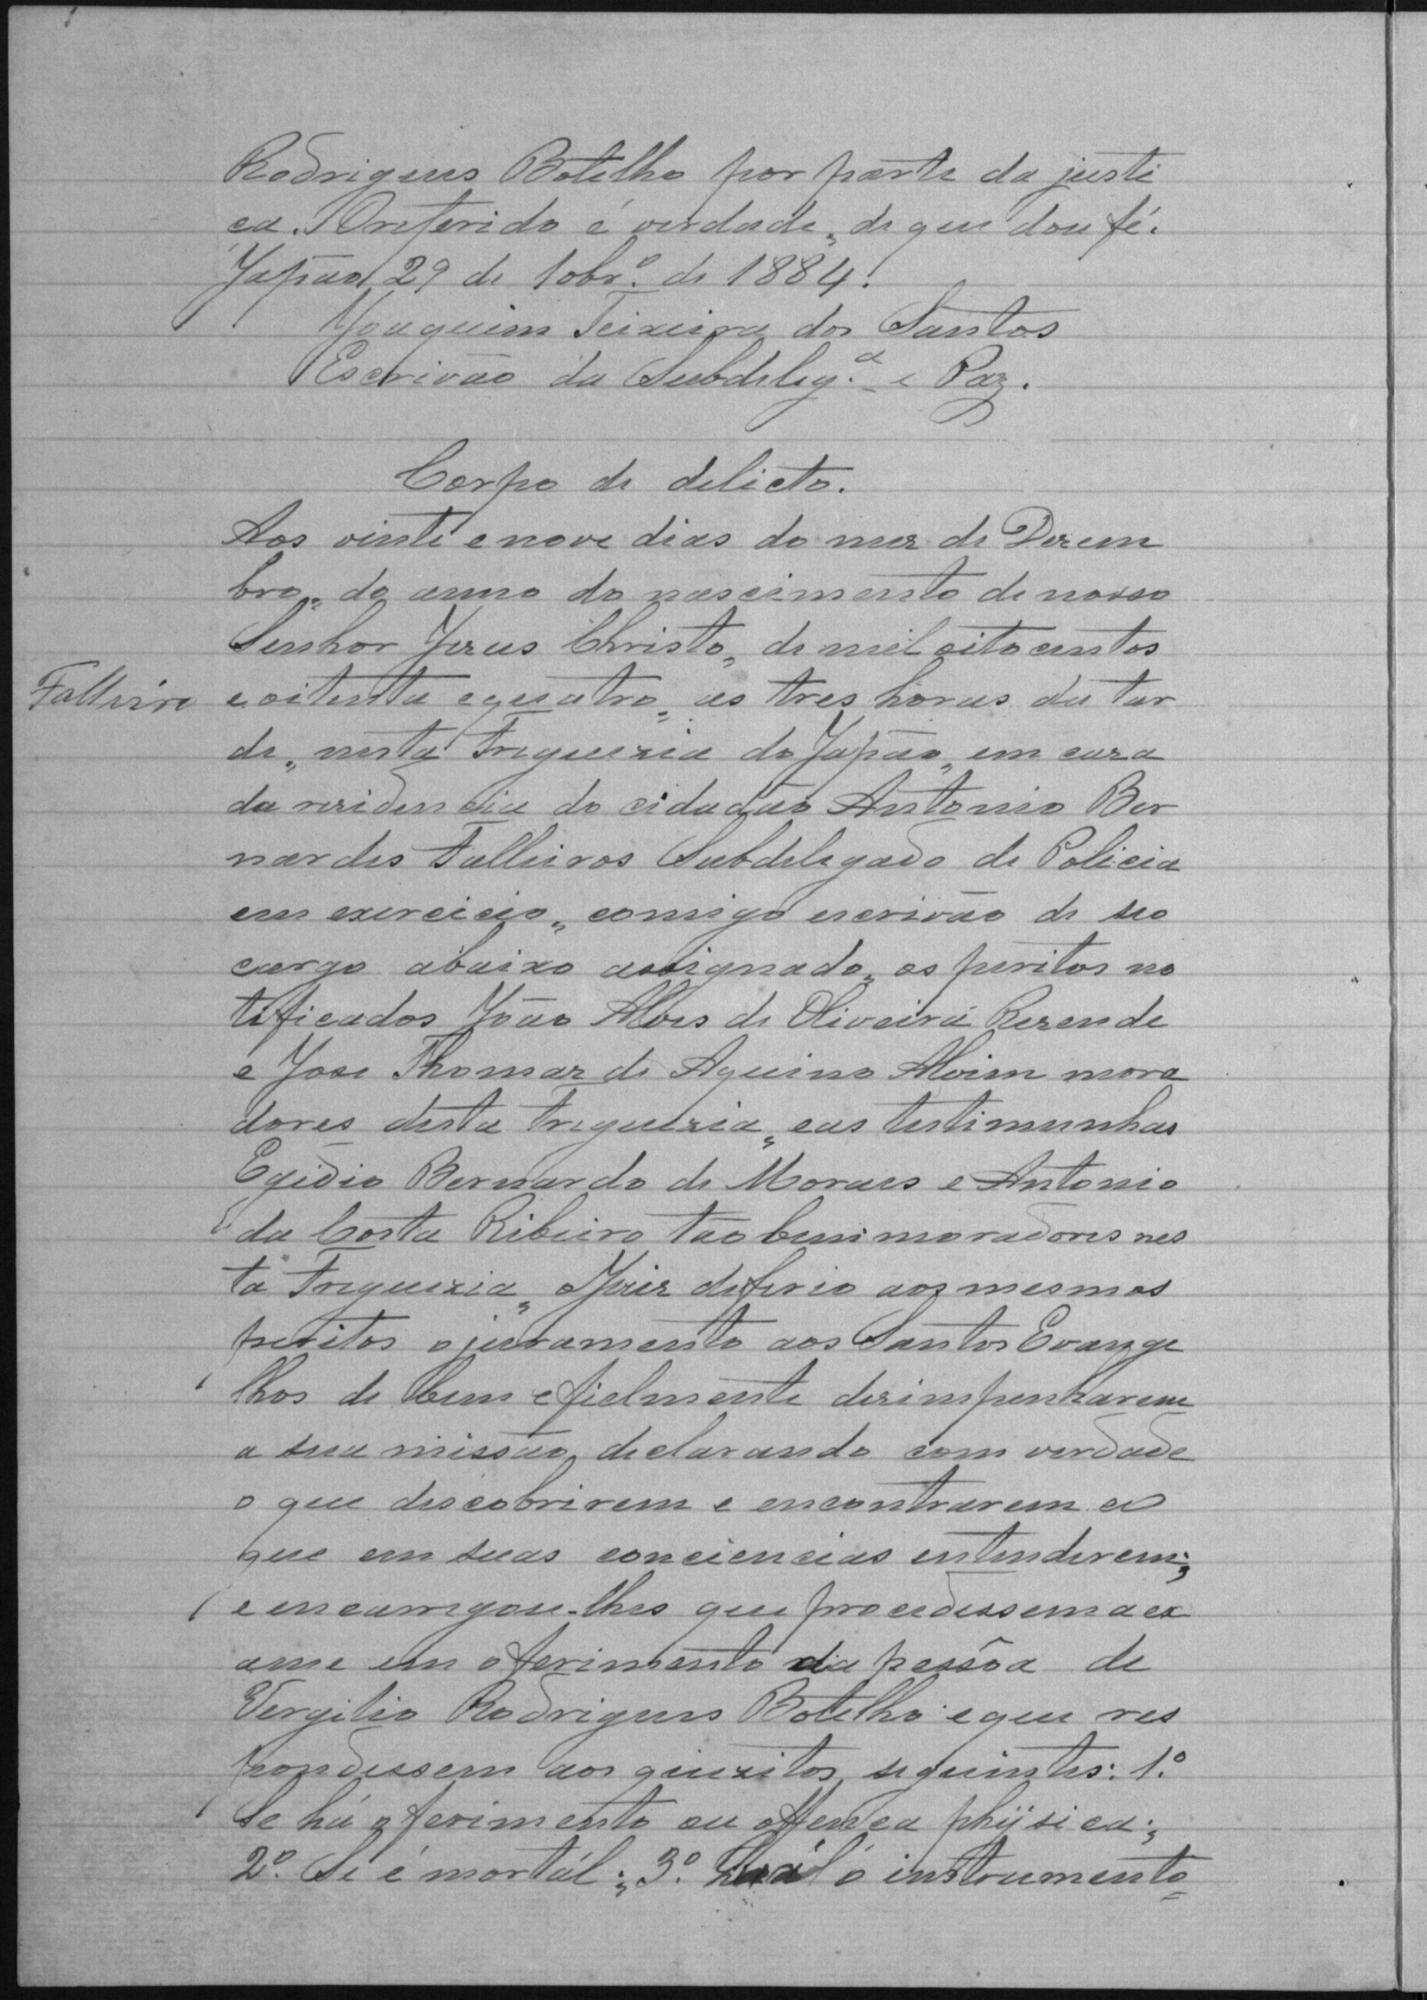 Rodrigues Botelho por parte da justi
ça. O referido é verdade, de que dou fé.
Japão 29 de 10br.º de 1884.
Joaquim Teixeira dos Santos
Escrivão da Subdeleg.ª e Paz.
Corpo de delicto.
Aos vinte e nove dias do mez de Dezem
bro, do anno do nascimento de nosso
Senhor Jezus Christo, de mil oitocentos
Falleiro
e oitenta e quatro, as tres horas da tar
de, nesta Freguezia do Japão, em caza
da rezidencia do cidadão Antonio Ber
nardes Falleiros Subdelegado de Policia
em exercicio, comigo escrivão de seo
cargo abaixo assignado, os peritos no
tificados João Alves de Oliveira Rezende
e Jose Thomaz de Aquino Alvim mora
dores desta freguezia, e as testimunhas
Egidio Bernardo de Moraes e Antonio
da Costa Ribeiro tão bem moradores nes
ta Freguezia, o Juiz deferio aos mesmos
peritos o juramento aos Santos Evange
lhos de bem e fielmente dezimpenharem
a sua missão, declarando com verdade
o que discobrirem e encontrarem e o
que em suas conciencias entenderem;
e encarregou-lhes que procedessem a ex
ame em o ferimento da pessôa de
Vergilio Rodrigues Botelho e que res
pondessem aos quezitos seguintes: 1.º
Se há o ferimento ou offença phijsica;
2.º Se é mortál; 3.º Quál o instrumento